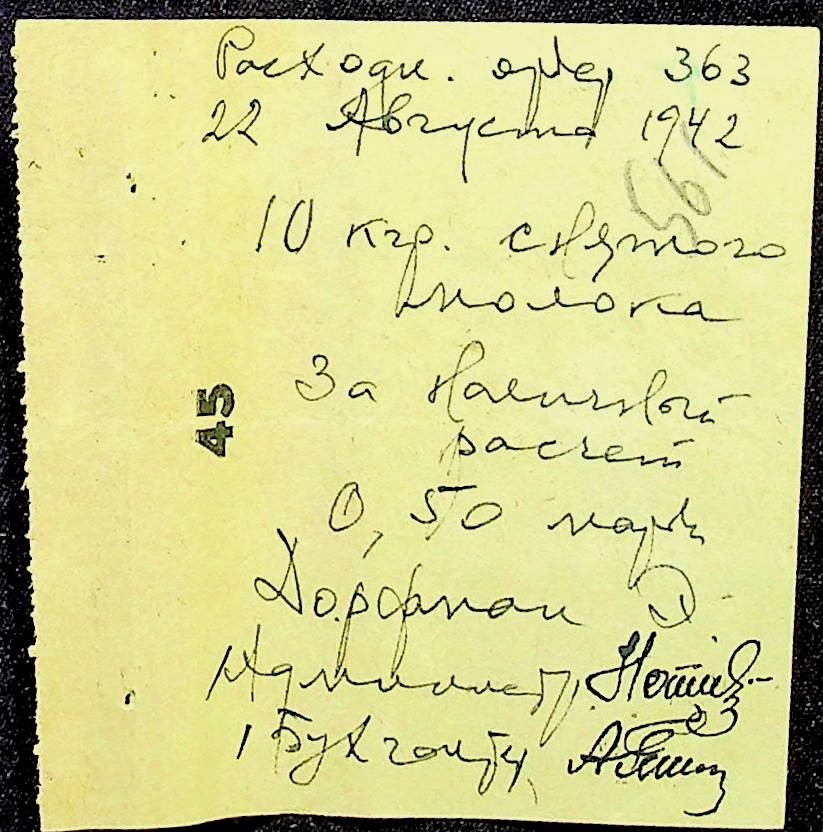 Расходн. ордер 363
22 Августа 1942
561
10 кгр. снятого
молока
За наличный
расчет
45
0,50 марк
Дорфман Э
Администр.
Бухгалтер